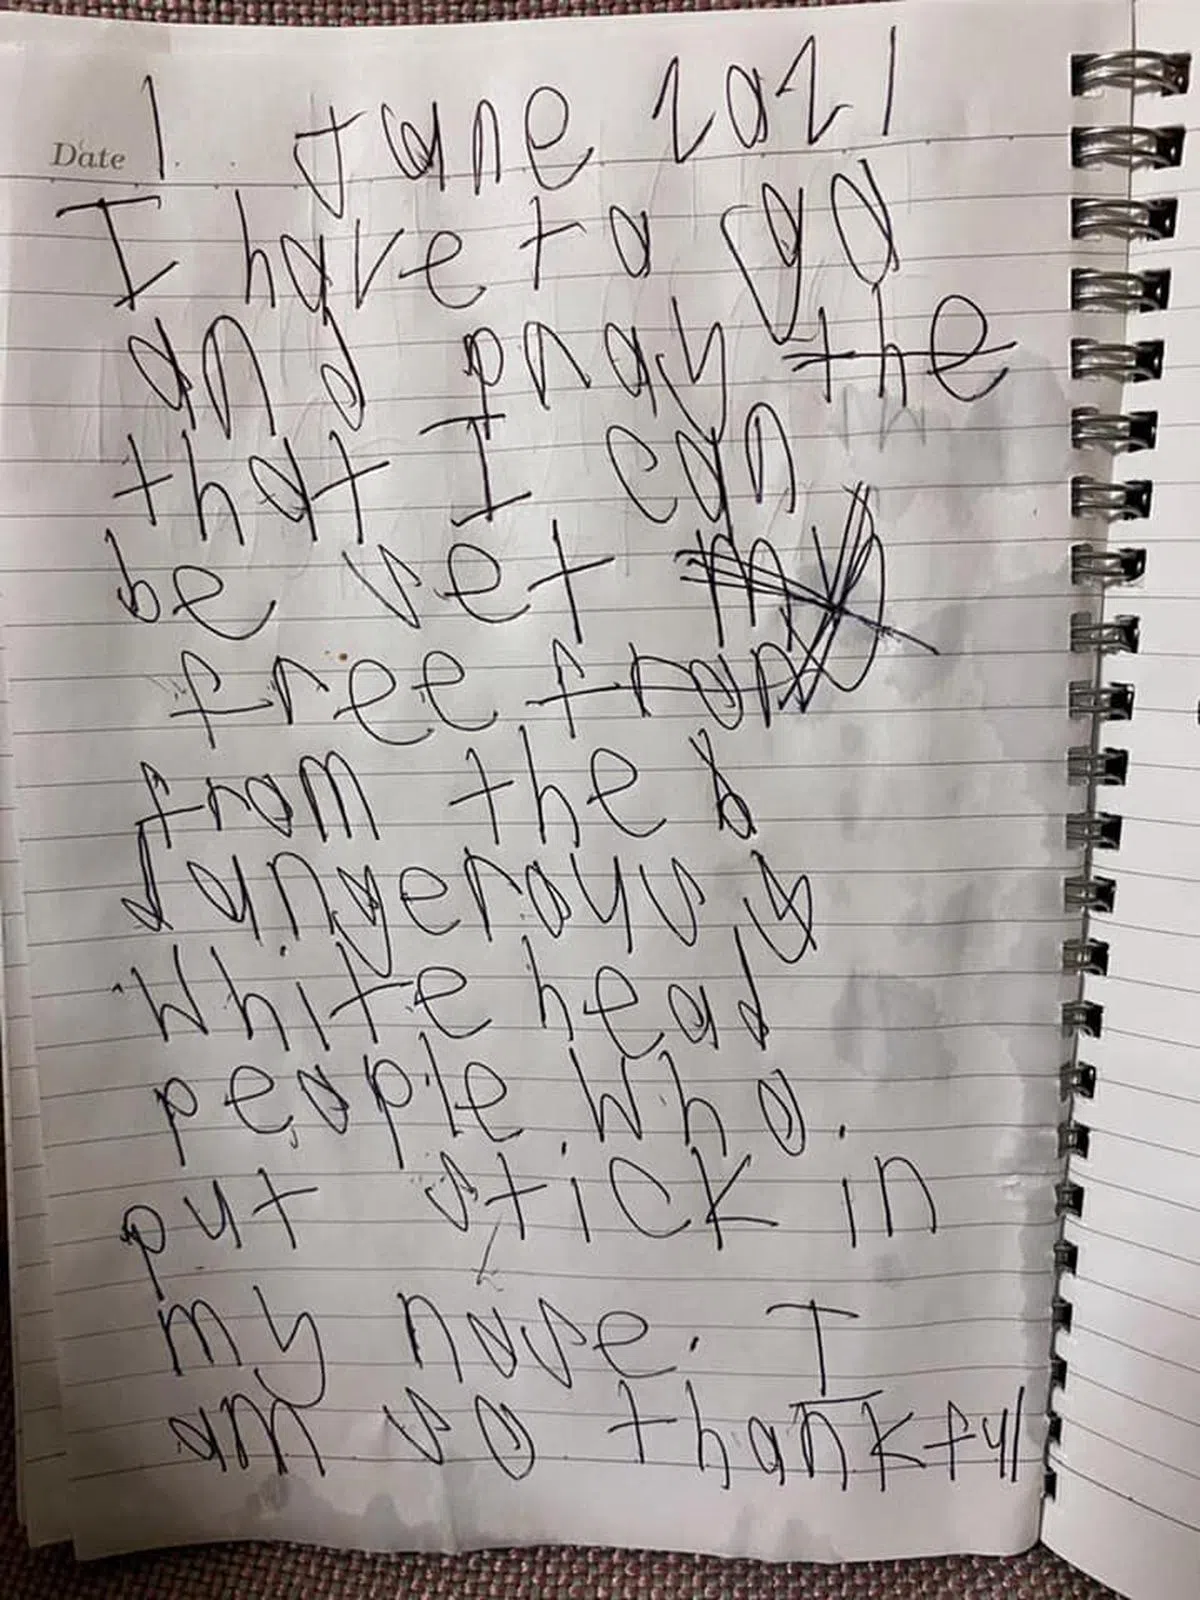 Date 1. June 2021
I have to go
and pray the
that I can
be set my
free from
from the b
dangerous
white head
people who.
put stick in
my nose. I
am so thankful